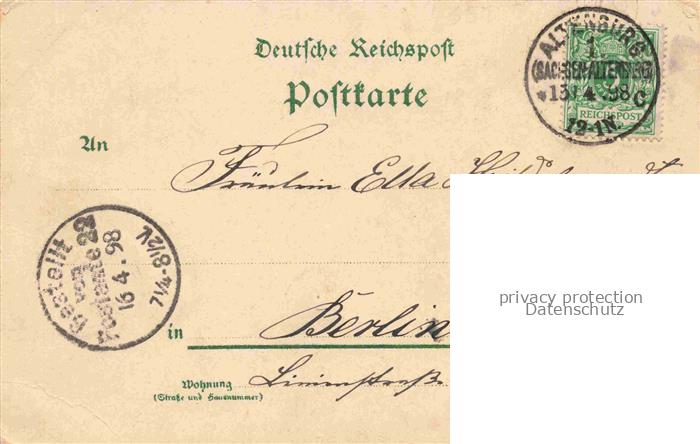 Deutsche Reichspost
Postkarte
ALTENBURG
1
(SACHSEN-ALTENBURG)
*15.4.98 C
12-1N.
REICHSPOST
An
Fräulein Ella
Bestellt
vom
Postamte 22
16.4.98
7 1/4-8 1/2V.
in Berlin
Wohnung
(Straße und Hausnummer)
Linienstraße
privacy protection
Datenschutz